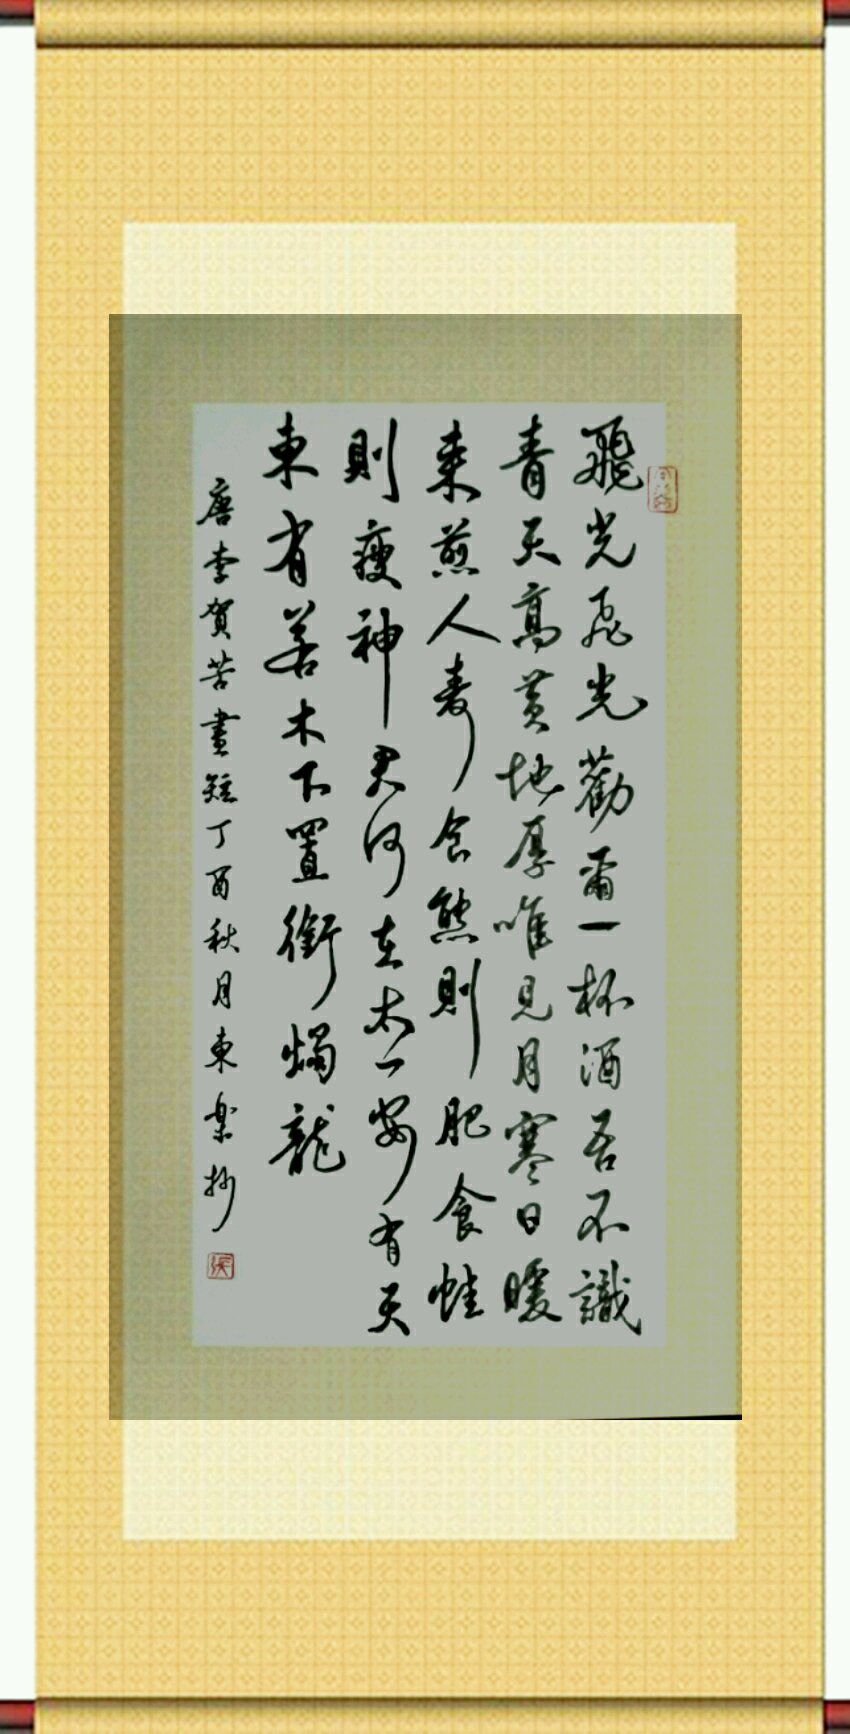 飛光飛光勸爾一杯酒吾不識
青天高黃地厚唯見月寒日暖
来煎人壽食熊則肥食蛙
則瘦神君何在太一安有天
東有若木下置銜燭龍
唐李賀苦晝短丁酉秋月東樂抄